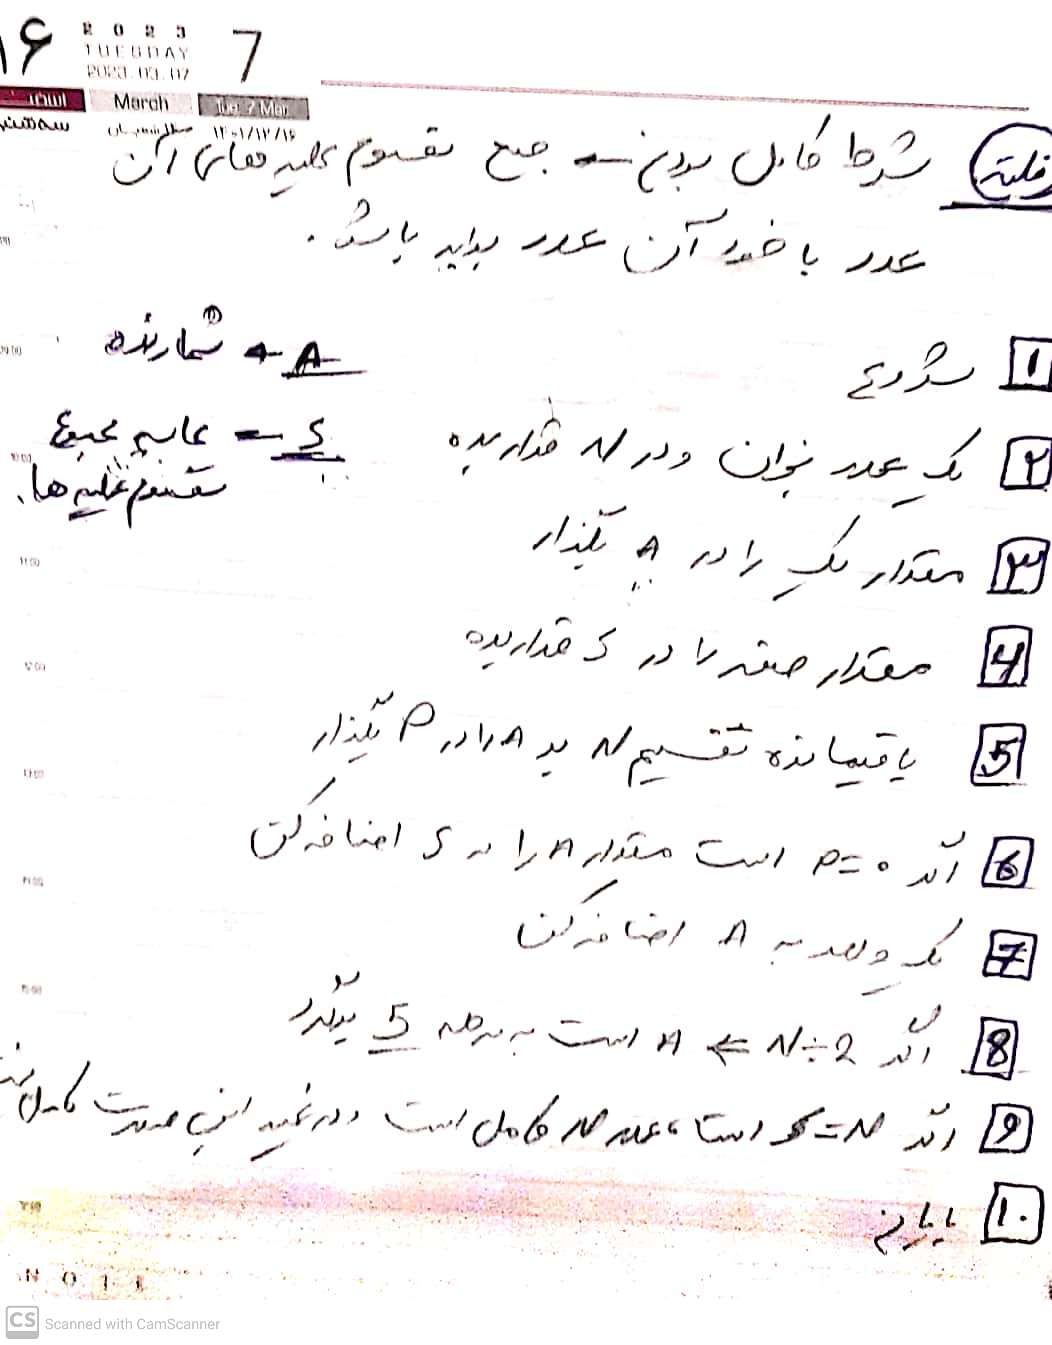 ۱۶
2023
TUESDAY
2023.03.07
7
اسفند
March
Tue. 7 Mar
سه‌شنبه
۱۴۰۱/۱۲/۱۶
شرط کامل بودن ← جمع مقسوم علیه های آن
عدد با خود آن عدد برابر باشد.
1 شروع
A ← شمارنده
2 یک عدد بخوان و در N قرار بده
S ← محاسبه مجموع
مقسوم علیه ها.
3 مقدار یک را در A بگذار
4 مقدار صفر را در S قرار بده
5 باقیمانده تقسیم N بر A را در P بگذار
6 اگر P=0 است مقدار A را به S اضافه کن
7 یک واحد به A اضافه کن
8 اگر A <= N÷2 است به مرحله 5 برگرد
9 اگر S=N است، عدد N کامل است و در غیر این صورت کامل
10 پایان
CS Scanned with CamScanner